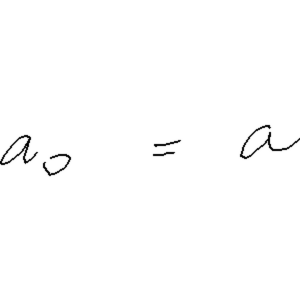 a₀ = a